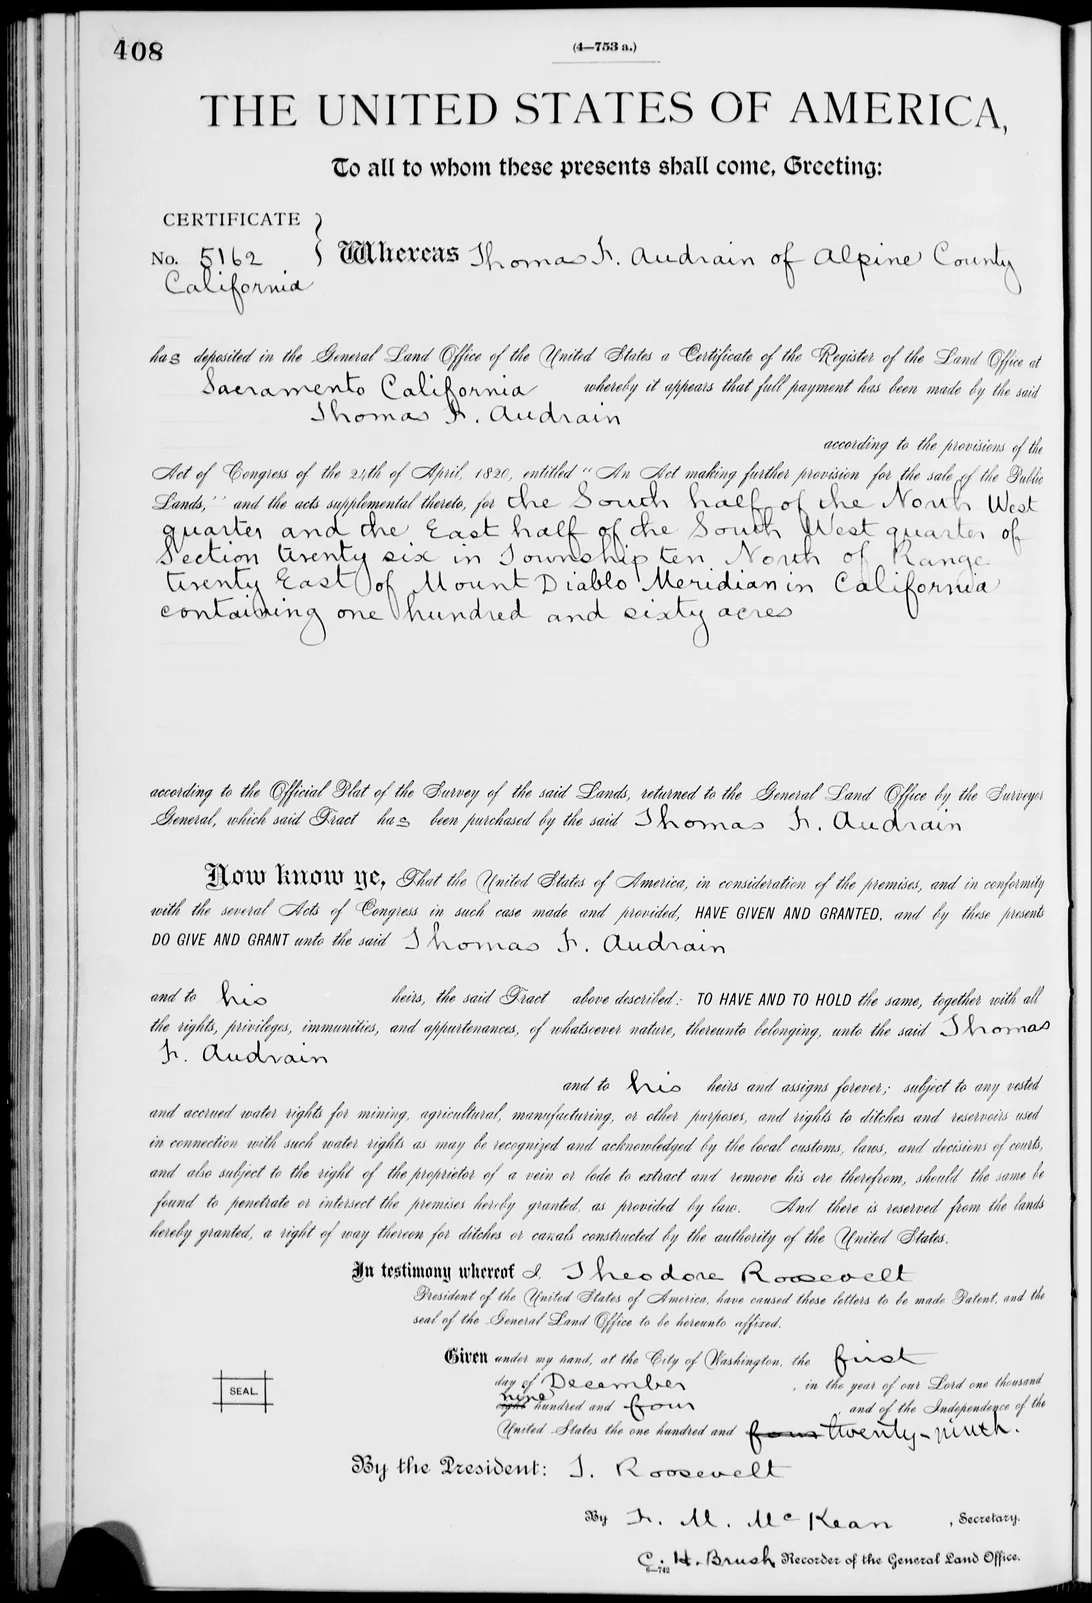 408
(4—753 a.)
THE UNITED STATES OF AMERICA,
To all to whom these presents shall come, Greeting:
CERTIFICATE
No. 5162 } Whereas Thomas F. Audrain of Alpine County
California
has deposited in the General Land Office of the United States a Certificate of the Register of the Land Office at
Sacramento California whereby it appears that full payment has been made by the said
Thomas F. Audrain
according to the provisions of the
Act of Congress of the 24th of April, 1820, entitled "An Act making further provision for the sale of the Public
Lands," and the acts supplemental thereto, for the South half of the North West
quarter and the East half of the South West quarter of
Section twenty six in Township ten North of Range
twenty East of Mount Diablo Meridian in California
containing one hundred and sixty acres
according to the Official Plat of the Survey of the said Lands, returned to the General Land Office by the Surveyor
General, which said Tract has been purchased by the said Thomas F. Audrain
Now know ye, That the United States of America, in consideration of the premises, and in conformity
with the several Acts of Congress in such case made and provided, HAVE GIVEN AND GRANTED, and by these presents
DO GIVE AND GRANT unto the said Thomas F. Audrain
and to his heirs, the said Tract above described: TO HAVE AND TO HOLD the same, together with all
the rights, privileges, immunities, and appurtenances, of whatsoever nature, thereunto belonging, unto the said Thomas
F. Audrain
and to his heirs and assigns forever; subject to any vested
and accrued water rights for mining, agricultural, manufacturing, or other purposes, and rights to ditches and reservoirs used
in connection with such water rights as may be recognized and acknowledged by the local customs, laws, and decisions of courts,
and also subject to the right of the proprietor of a vein or lode to extract and remove his ore therefrom, should the same be
found to penetrate or intersect the premises hereby granted, as provided by law. And there is reserved from the lands
hereby granted, a right of way thereon for ditches or canals constructed by the authority of the United States.
In testimony whereof I, Theodore Roosevelt
President of the United States of America, have caused these letters to be made Patent, and the
seal of the General Land Office to be hereunto affixed.
Given under my hand, at the City of Washington, the first
day of December, in the year of our Lord one thousand
nine
eight hundred and four, and of the Independence of the
United States the one hundred and four twenty-ninth.
SEAL.
By the President: T. Roosevelt
By F. M. McKean, Secretary.
C. H. Brush Recorder of the General Land Office.
6—742